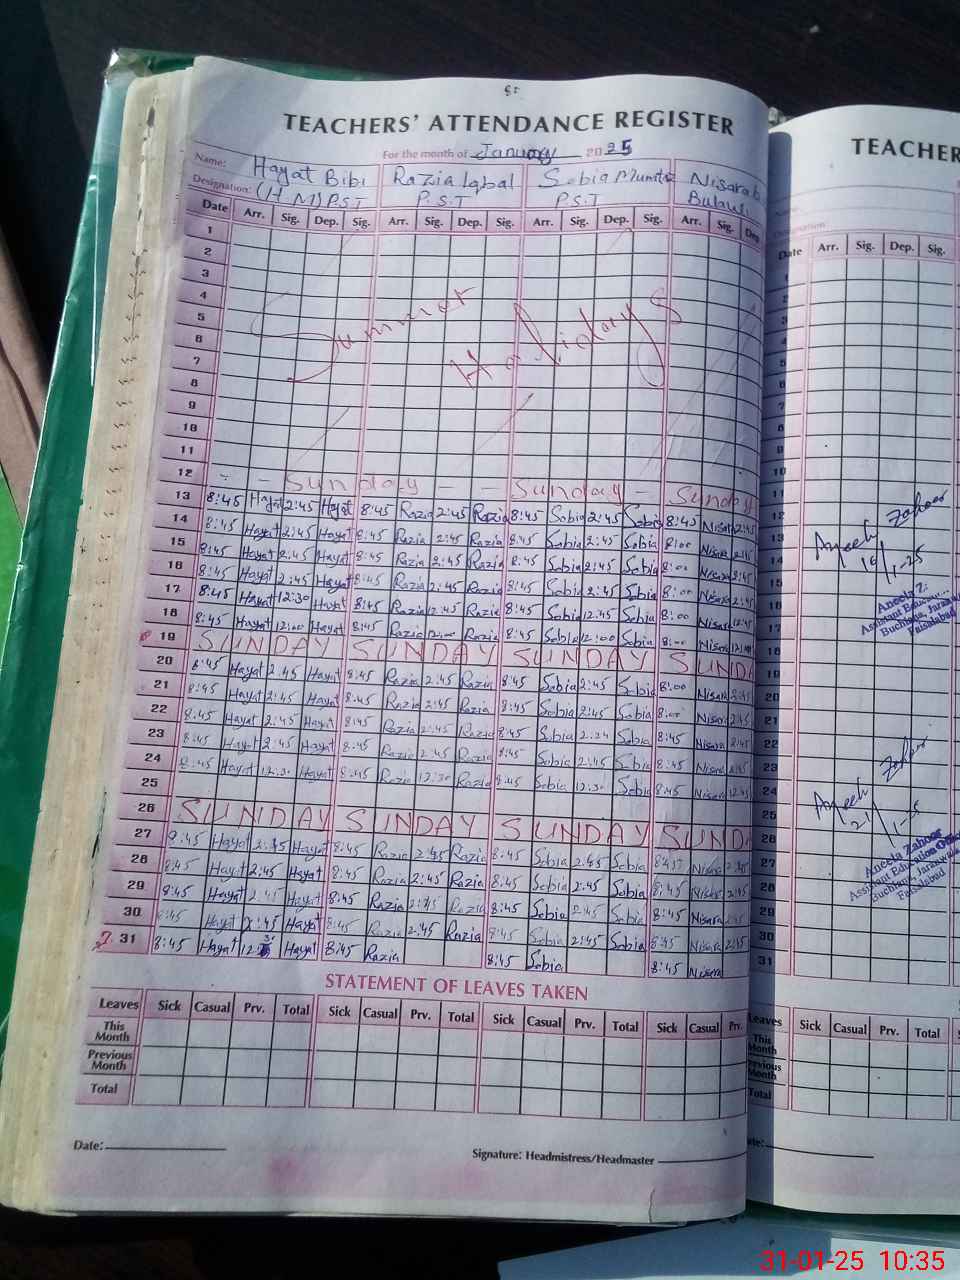 TEACHERS' ATTENDANCE REGISTER
For the month of January 2025
Name: Hayat Bibi Razia Iqbal Sobia Mumtaz Nisarab
Designation: (H.M) P.S.T P.S.T P.S.T
Date Arr. Sig. Dep. Sig. Arr. Sig. Dep. Sig. Arr. Sig. Dep. Sig. Arr. Sig. Dep
1
2
3
4
5
6
7
8
9
10
11
Summer Holidays
12 - - Sunday - - Sunday - Sunday
13 8:45 Hayat 2:45 Hayat 8:45 Razia 2:45 Razia 8:45 Sobia 2:45 Sobia 8:45 Nisara 2:45
14 8:45 Hayat 2:45 Hayat 8:45 Razia 2:45 Razia 8:45 Sobia 2:45 Sobia 8:00 Nisara 2:45
15 8:45 Hayat 2:45 Hayat 8:45 Razia 2:45 Razia 8:45 Sobia 2:45 Sobia 8:00 Nisara 2:45
16 8:45 Hayat 2:45 Hayat 8:45 Razia 2:45 Razia 8:45 Sobia 2:45 Sobia 8:00 Nisara 2:45
17 8:45 Hayat 12:30 Hayat 8:45 Razia 12:45 Razia 8:45 Sobia 12:45 Sobia 8:00 Nisara 12:45
18 8:45 Hayat 12:00 Hayat 8:45 Razia 12:00 Razia 8:45 Sobia 12:00 Sobia 8:00 Nisara
19 SUNDAY SUNDAY SUNDAY SUNDA
20 8:45 Hayat 2:45 Hayat 8:45 Razia 2:45 Razia 8:45 Sobia 2:45 Sobia 8:00 Nisara 2:45
21 8:45 Hayat 2:45 Hayat 8:45 Razia 2:45 Razia 8:45 Sobia 2:45 Sobia 8:00 Nisara 2:45
22 8:45 Hayat 2:45 Hayat 8:45 Razia 2:45 Razia 8:45 Sobia Sobia 8:45 Nisara 2:45
23 8:45 Hayat 2:45 Hayat 8:45 Razia 2:45 Razia 8:45 Sobia 2:45 Sobia 8:45 Nisara 2:45
24 8:45 Hayat 12:30 Hayat 8:45 Razia 12:30 Razia 8:45 Sobia 12:30 Sobia 8:45 Nisara 12:45
25
26 SUNDAY SUNDAY SUNDAY SUND
27 8:45 Hayat 2:45 Hayat 8:45 Razia 2:45 Razia 8:45 Sobia 2:45 Sobia 8:45 Nisara 2:45
28 8:45 Hayat 2:45 Hayat 8:45 Razia 2:45 Razia 8:45 Sobia 2:45 Sobia 8:45 Nisara 2:45
29 8:45 Hayat 2:45 Hayat 8:45 Razia 2:45 Razia 8:45 Sobia 2:45 Sobia 8:45 Nisara 2:45
30 8:45 Hayat 2:45 Hayat 8:45 Razia 2:45 Razia 8:45 Sobia 2:45 Sobia 8:45 Nisara 2:45
31 8:45 Hayat Hayat 8:45 Razia 8:45 Sobia 8:45 Nisara
STATEMENT OF LEAVES TAKEN
Leaves Sick Casual Prv. Total Sick Casual Prv. Total Sick Casual Prv. Total Sick Casual Prv.
This Month
Previous Month
Total
Date:
Signature: Headmistress/Headmaster
TEACHER
Date Arr. Sig. Dep. Sig.
10
11
12
13
14
15
16
17
18
19
20
21
22
23
24
25
26
27
28
29
30
31
Aneela Zaheer
16/1-25
Aneela Z.
Assistant Educa
Buchiana, Jaran
Faisalabad
Aneela Zaheer
21/1-25
Aneela Zaheer
Assistant Education Off
Buchiana, Jaranwala
Faisalabad
Leaves Sick Casual Prv. Total
This Month
Previous Month
Total
31-01-25 10:35